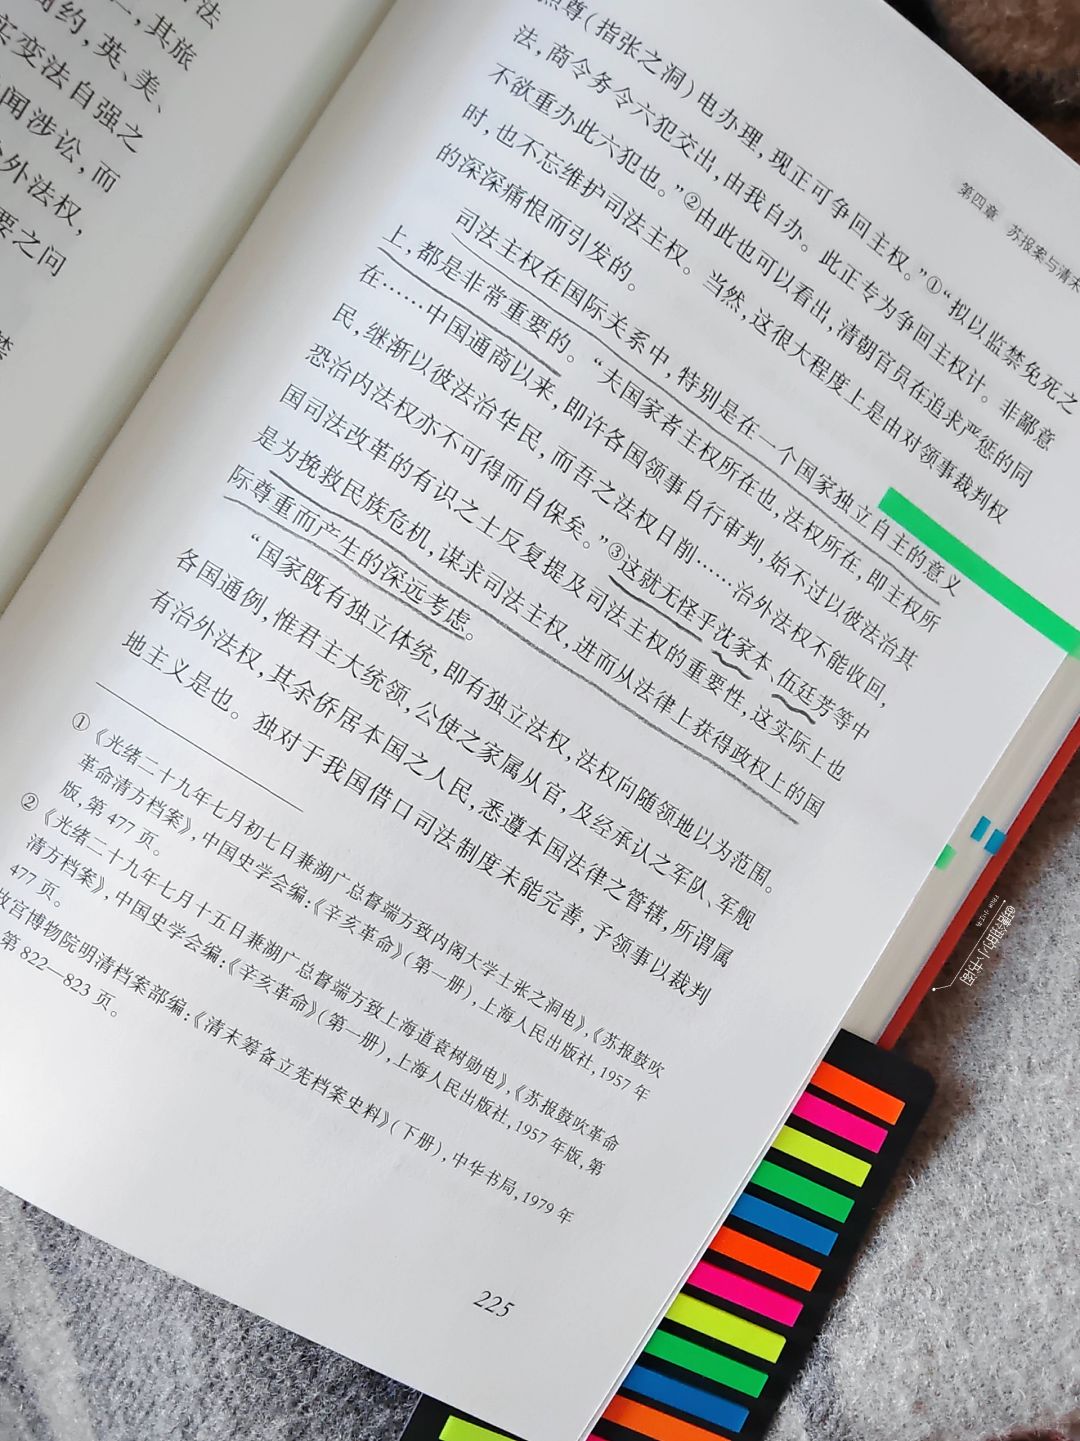 法
，其旅
约，英、美、
实变法自强之
闻涉讼，而
外法权，
要之问
第四章 苏报案与清末
尊（指张之洞）电办理，现正可争回主权。”①“拟以监禁免死之
法，商令务令六犯交出，由我自办。此正专为争回主权计。非鄙意
不欲重办此六犯也。”②由此也可以看出，清朝官员在追求严惩的同
时，也不忘维护司法主权。当然，这很大程度上是由对领事裁判权
的深深痛恨而引发的。
司法主权在国际关系中，特别是在一个国家独立自主的意义
上，都是非常重要的。“夫国家者主权所在也，法权所在，即主权所
在……中国通商以来，即许各国领事自行审判，始不过以彼法治其
民，继渐以彼法治华民，而吾之法权日削……治外法权不能收回，
恐治内法权亦不可得而自保矣。”③这就无怪乎沈家本、伍廷芳等中
国司法改革的有识之士反复提及司法主权的重要性，这实际上也
是为挽救民族危机，谋求司法主权，进而从法律上获得政权上的国
际尊重而产生的深远考虑。
“国家既有独立体统，即有独立法权，法权向随领地以为范围。
各国通例，惟君主大统领，公使之家属从官，及经承认之军队、军舰
有治外法权，其余侨居本国之人民，悉遵本国法律之管辖，所谓属
地主义是也。独对于我国借口司法制度未能完善，予领事以裁判
①《光绪二十九年七月初七日兼湖广总督端方致内阁大学士张之洞电》，《苏报鼓吹
革命清方档案》，中国史学会编：《辛亥革命》（第一册），上海人民出版社，1957 年
版，第 477 页。
②《光绪二十九年七月十五日兼湖广总督端方致上海道袁树勋电》，《苏报鼓吹革命
清方档案》，中国史学会编：《辛亥革命》（第一册），上海人民出版社，1957 年版，第
477 页。
故宫博物院明清档案部编：《清末筹备立宪档案史料》（下册），中华书局，1979 年
第 822—823 页。
225